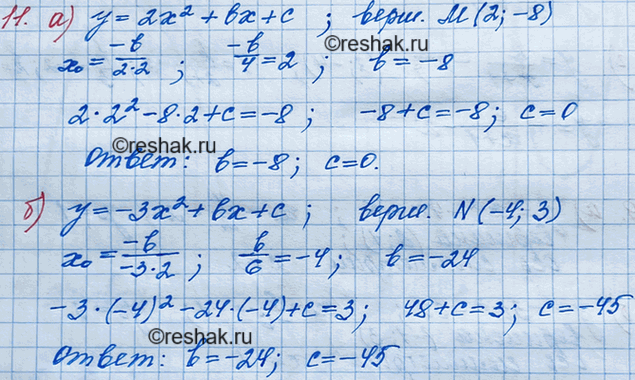 11. а) y = 2x² + bx + c ; верш. M(2; -8)
x₀ = -b/2·2 ; -b/4 = 2 ; b = -8
©reshak.ru
2·2² - 8·2 + c = -8 ; -8 + c = -8; c = 0
©reshak.ru
Ответ: b = -8 ; c = 0.
б) y = -3x² + bx + c ; верш. N(-4; 3)
x₀ = -b/-3·2 ; b/6 = -4 ; b = -24
-3·(-4)² - 24·(-4) + c = 3; 48 + c = 3; c = -45
©reshak.ru
Ответ: b = -24; c = -45